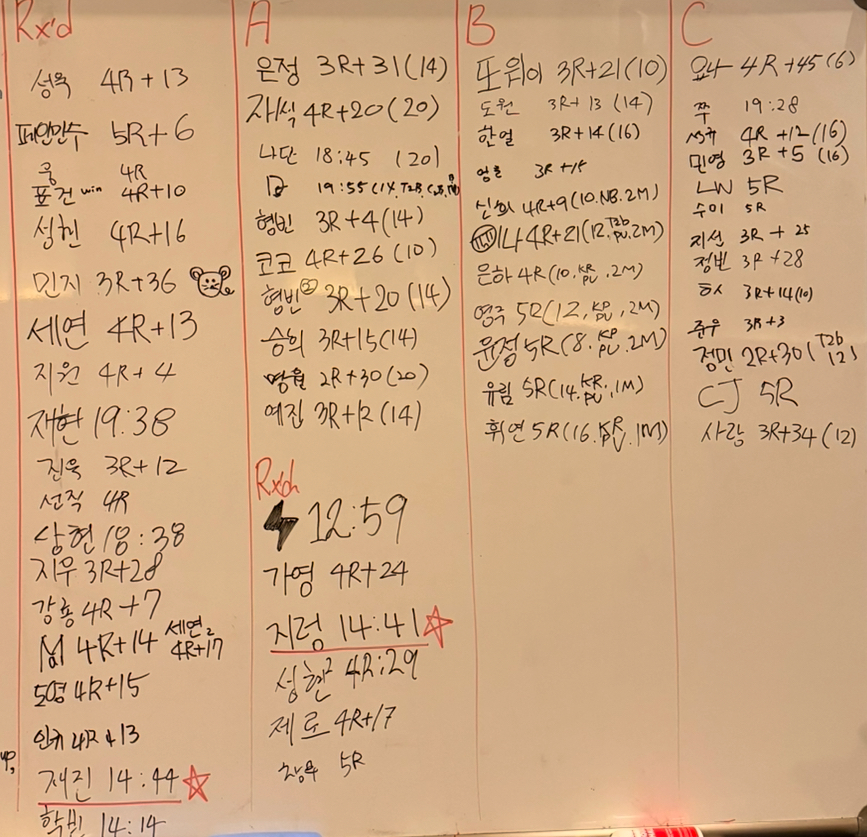 Rx'd
성욱 4R+13
페인만수 5R+6
쿵 4R
표건 win 4R+10
성헌 4R+16
민지 3R+36
세연 4R+13
지원 4R+4
재현 19:38
진욱 3R+12
선직 4R
상현 18:38
지우 3R+28
강흥 4R+7
섬 4R+14 세연2 4R+17
도영 4R+15
인규 4R+13
up,
재진 14:44
학빈 14:14
A
은정 3R+31(14)
자식 4R+20(20)
나단 18:45 (20)
19:55(14, T2B
형빈 3R+4(14)
코코 4R+26(10)
형빈② 3R+20(14)
승희 3R+15(14)
명월 2R+30(20)
예진 3R+12(14)
Rx'd
12:59
가영 4R+24
지령 14:41
성현2 4R:29
제로 4R+17
창우 5R
B
또위이 3R+21(10)
도원 3R+13(14)
한얼 3R+14(16)
영호 3R+15
신희 4R+9(10.NB.2M)
4R+21(12.T2b PU.2M)
은하 4R(10.KR PU.2M)
영주 5R(12,KR PU,2M)
윤정 5R(8.KR PU.2M)
유림 5R(14.KR PU.1M)
휘연 5R(16.KR PU.1M)
C
요나 4R+45(6)
쭈 19:28
성규 4R+12(16)
민영 3R+5(16)
LW 5R
수이 5R
지선 3R+25
정빈 3R+28
3R+14(10)
준우 3R+3
정민 2R+30(T2b 12)
CJ 5R
사랑 3R+34(12)